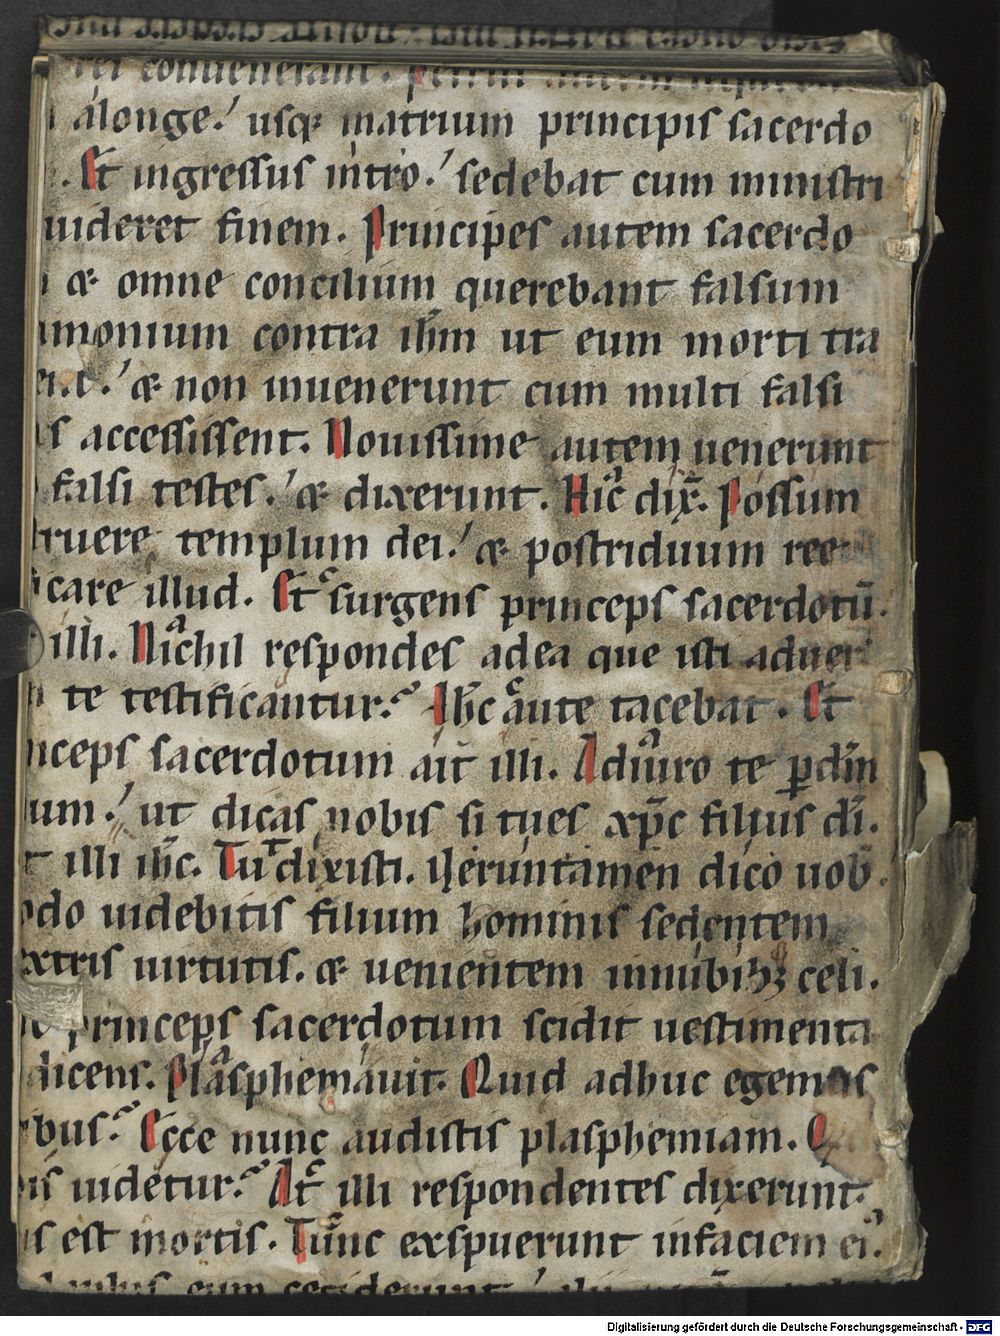 rei conuenerant. Petrus autem
alonge! usq; in atrium principis sacerdo
. Et ingressus intro! sedebat cum ministri
uideret finem. Principes autem sacerdo
& omne concilium querebant falsum
imonium contra ihm ut eum morti tra
ent! & non inuenerunt cum multi falsi
s accessissent. Nouissime autem uenerunt
falsi testes! & dixerunt. Hic dix̄. Possum
truere templum dei! & postriduum ree
ficare illud. Et surgens princeps sacerdotū.
illi. Nichil respondes adea que isti aduer
te testificantur? Ihc aute tacebat. Et
nceps sacerdotum ait illi. Adiuro te p̱ dm̄
uum! ut dicas nobis si tu es xp̄c filius dī.
t illi ihc. Tu dixisti. Ueruntamen dico uob̄.
odo uidebitis filium hominis sedentem
extris uirtutis. & uenientem innubibꝫ celi.
princeps sacerdotum scidit uestimenta
dicens. Plasphemauit. Quid adhuc egemus
ibus? Ecce nunc audistis plasphemiam. Q
is uidetur? At illi respondentes dixerunt.
us est mortis. Tunc exspuerunt infaciem ei.
eum ceciderunt!
Digitalisierung gefördert durch die Deutsche Forschungsgemeinschaft - DFG